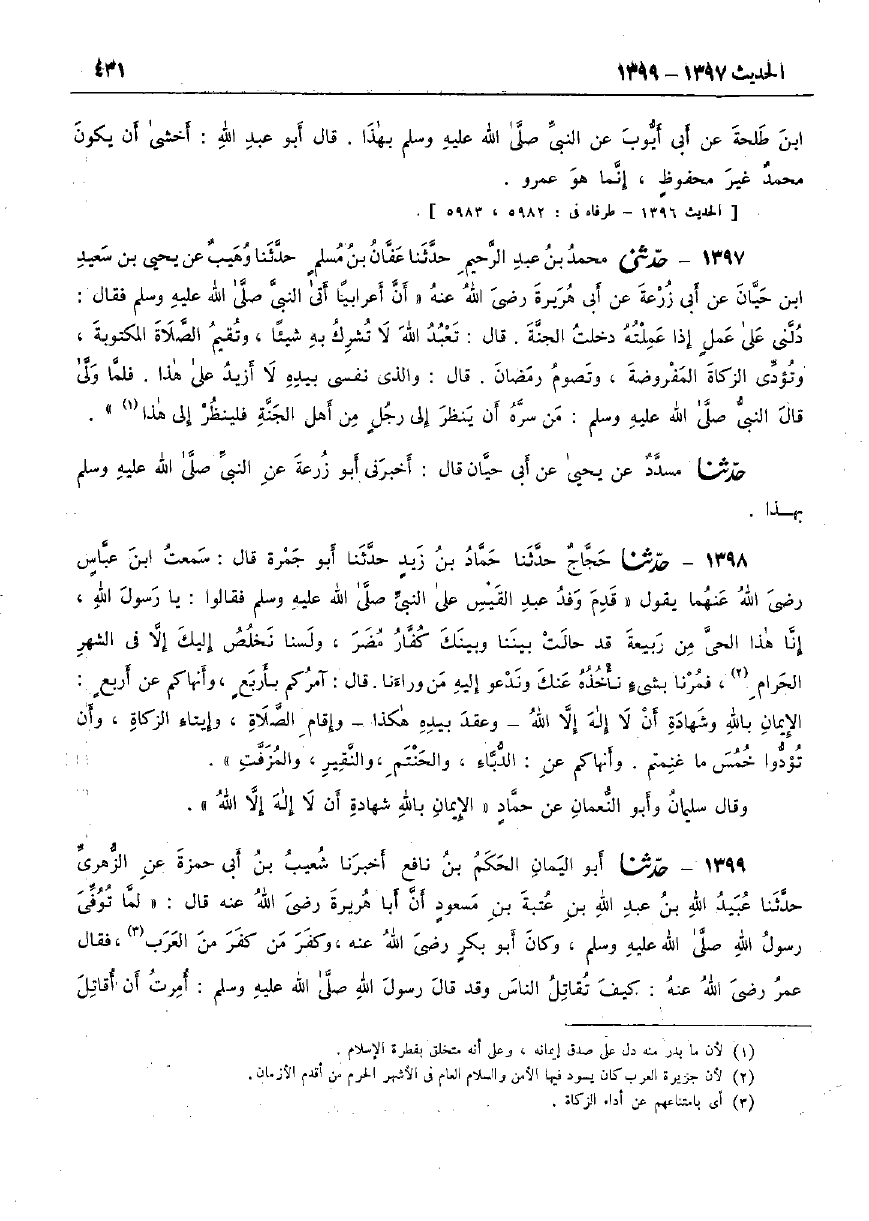 الحديث ١٣٩٧ – ١٣٩٩
٤٣١
ابنَ طَلحةَ عن أَبى أَيُّوبَ عن النبىِّ صلَّىٰ الله عليهِ وسلم بهٰذَا . قال أَبو عبدِ اللهِ : أَخشىٰ أَن يكونَ
محمدٌ غيرَ محفوظٍ ، إِنَّما هوَ عمرو .
[ الحديث ١٣٩٦ – طرفاه فى : ٥٩٨٢ ، ٥٩٨٣ ] .
١٣٩٧ – حدّثنى محمدُ بنُ عبدِ الرَّحيمِ حدَّثَنا عَفَّانُ بنُ مُسلمٍ حدَّثَنا وُهَيبٌ عن يحيى بن سَعيدِ
ابن حَيَّانَ عن أَبى زُرْعةَ عن أَبى هُرَيرةَ رضىَ اللهُ عنهُ « أَنَّ أَعرابيًّا أَتىٰ النبىَّ صلَّىٰ الله عليهِ وسلم فقال :
دُلَّنى عَلىٰ عملٍ إِذا عَمِلْتُهُ دخلتُ الجنَّةَ . قال : تَعْبُدُ اللهَ لَا تُشرِكُ بهِ شيئًا ، وتُقيمُ الصَّلَاةَ المكتوبةَ ،
وتُؤدِّى الزكاةَ المَفْروضةَ ، وتَصومُ رمَضانَ . قال : والذى نفسى بيدِهِ لَا أَزيدُ علىٰ هٰذا . فلمَّا وَلَّىٰ
قالَ النبىُّ صلَّىٰ الله عليهِ وسلم : مَن سرَّهُ أَن يَنظرَ إِلى رجُلٍ مِن أَهلِ الجَنَّةِ فلينظُرْ إِلى هٰذا (١) » .
حدّثنا مسدَّدٌ عن يحيىٰ عن أَبى حيَّان قال : أَخبرَنى أَبو زُرعةَ عنِ النبىِّ صلَّىٰ الله عليهِ وسلم
بهـذا .
١٣٩٨ – حدّثنا حَجَّاجٌ حدَّثَنا حَمَّادُ بنُ زَيدٍ حدَّثَنا أَبو جَمْرة قال : سَمعتُ ابنَ عبَّاسٍ
رضىَ اللهُ عَنهُما يقول « قَدِمَ وَفدُ عبدِ القَيْسِ علىٰ النبىِّ صلَّىٰ الله عليهِ وسلم فقالوا : يا رَسولَ اللهِ ،
إِنَّا هٰذا الحىَّ مِن رَبيعةَ قد حالَتْ بيننا وبينَكَ كُفَّارُ مُضَرَ ، ولَسنا نَخلُصُ إِليكَ إِلَّا فى الشهرِ
الحَرامِ (٢) ، فمُرْنا بشىءٍ نأْخُذُهُ عَنكَ ونَدْعو إِليهِ مَن وراءَنا . قال : آمرُكم بأَربَعٍ ، وأَنهاكم عن أَربعٍ :
الإِيمانِ باللهِ وشَهادةِ أَنْ لَا إِلٰهَ إِلَّا اللهُ – وعقدَ بيدِهِ هٰكذا – وإِقامِ الصَّلَاةِ ، وإِيتاءِ الزكاةِ ، وأَن
تُؤدُّوا خُمُسَ ما غنِمتم . وأَنهاكم عنِ : الدُّبَّاءِ ، والحَنْتَمِ ، والنَّقِيرِ ، والمُزَفَّتِ » .
وقال سليمانُ وأَبو النُّعمانِ عن حمَّادٍ « الإِيمانِ باللهِ شهادةِ أَن لَا إِلٰهَ إِلَّا اللهُ » .
١٣٩٩ – حدّثنا أَبو اليَمانِ الحَكَمُ بنُ نافعٍ أَخبرَنا شُعيبُ بنُ أَبى حمزةَ عنِ الزُّهرىِّ
حدَّثَنا عُبَيدُ اللهِ بنُ عبدِ اللهِ بنِ عُتبةَ بنِ مَسعودٍ أَنَّ أَبا هُريرةَ رضىَ اللهُ عنه قال : « لمَّا تُوُفِّىَ
رسولُ اللهِ صلَّىٰ الله عليهِ وسلم ، وكانَ أَبو بكرٍ رضىَ اللهُ عنه ، وكفَرَ مَن كفَرَ منَ العَرَبِ (٣) ، فقال
عمرُ رضىَ اللهُ عنهُ : كيفَ تُقاتِلُ الناسَ وقد قالَ رسولُ اللهِ صلَّىٰ الله عليهِ وسلم : أُمِرتُ أَن أُقاتِلَ
(١) لأن ما بدر منه دل على صدق إيمانه ، وعلى أنه متخلق بفطرة الإسلام .
(٢) لأن جزيرة العرب كان يسود فيها الأمن والسلام العام فى الأشهر الحرم من أقدم الأزمان .
(٣) أى بامتناعهم عن أداء الزكاة .